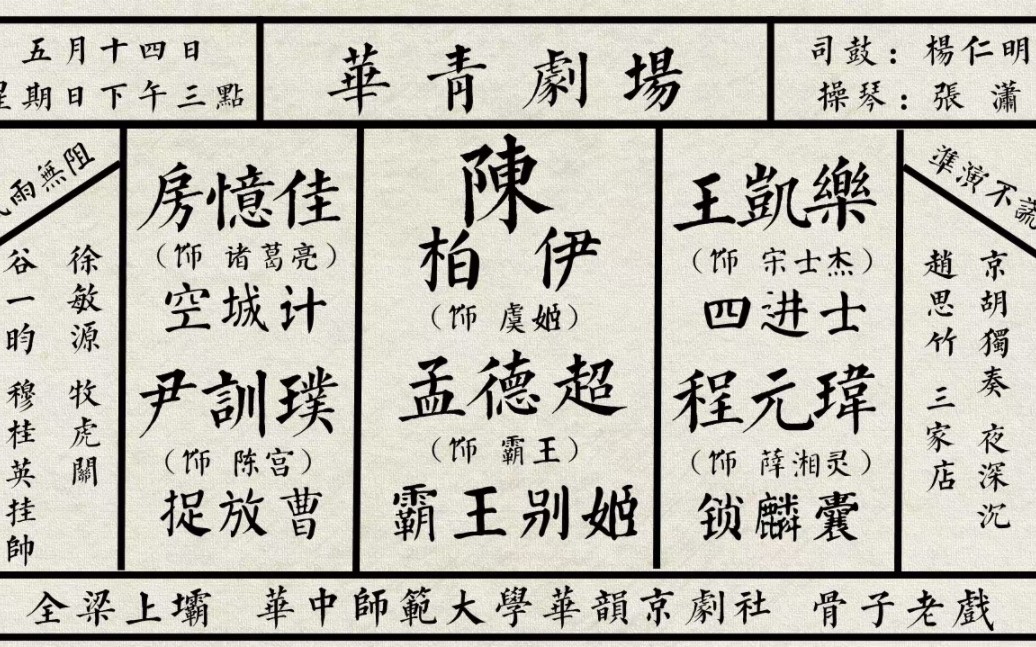 五月十四日
星期日下午三點
華青劇場
司鼓：楊仁明
操琴：張 瀟
雨無阻
徐敏源 牧虎關
谷一昀 穆桂英挂帥
房憶佳
（饰 诸葛亮）
空城计
尹訓璞
（饰 陈宫）
捉放曹
陳
柏 伊
（饰 虞姬）
孟德超
（饰 霸王）
霸王别姬
王凱樂
（饰 宋士杰）
四进士
程元瑋
（饰 薛湘灵）
锁麟囊
準演不謊
京胡獨奏 夜深沉
趙思竹 三家店
全梁上壩 華中師範大學華韻京劇社 骨子老戲